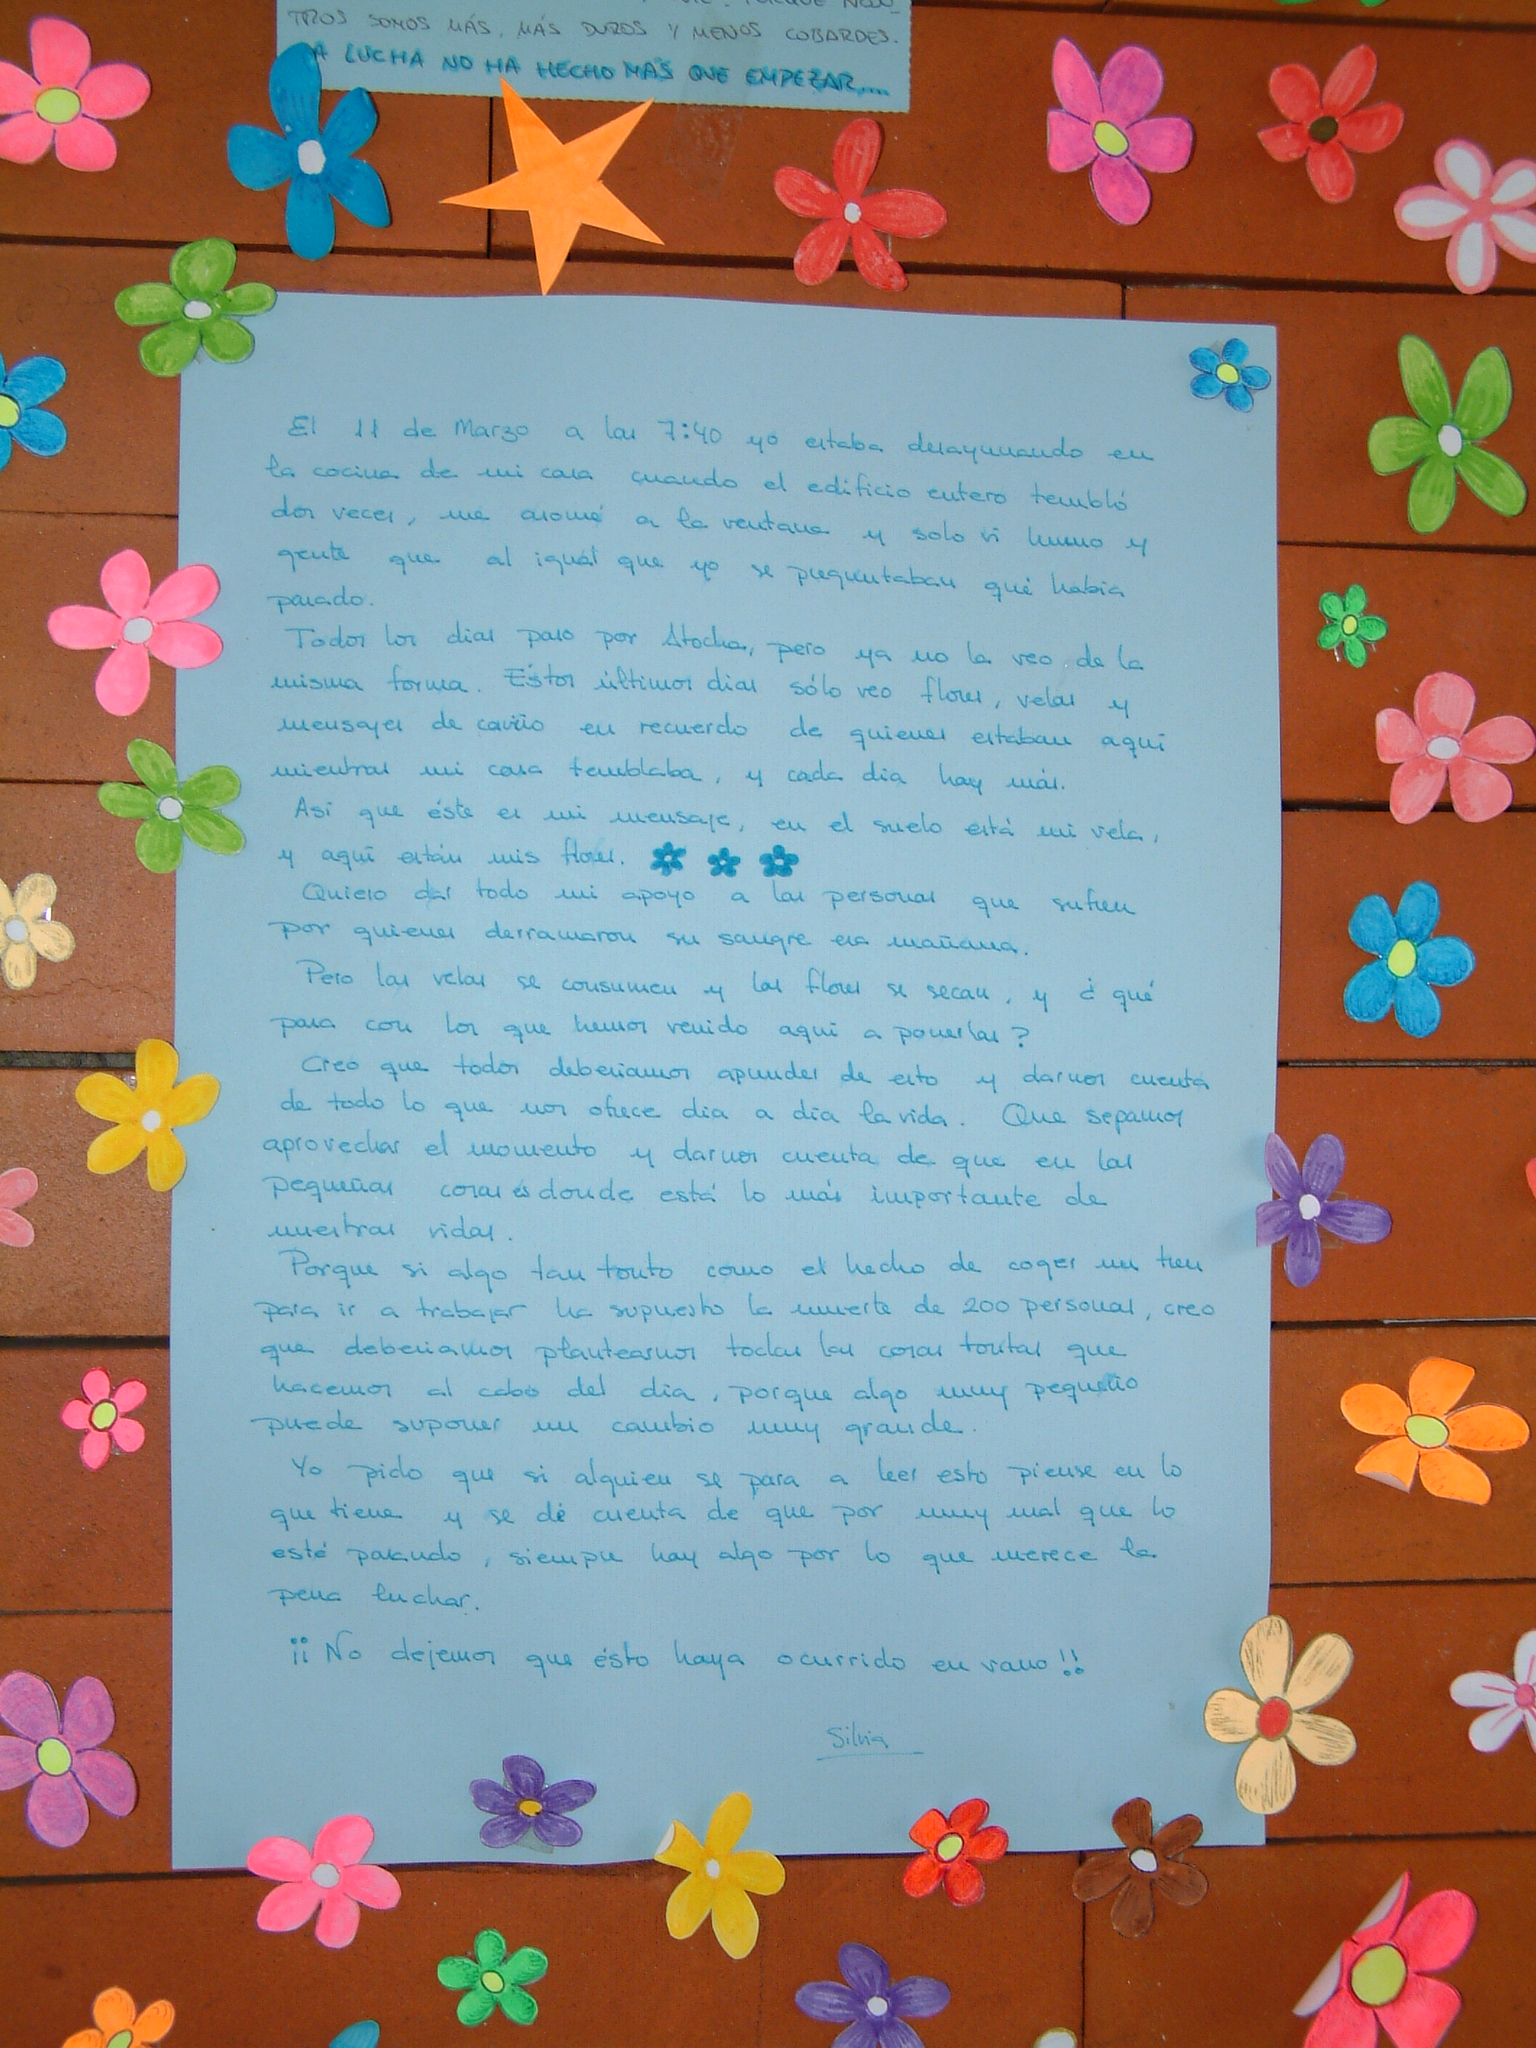 TROS SOMOS MÁS, MÁS DUROS Y MENOS COBARDES.
A LUCHA NO HA HECHO MÁS QUE EMPEZAR....
El 11 de Marzo a las 7:40 yo estaba desayunando en
la cocina de mi casa cuando el edificio entero tembló
dos veces, me asomé a la ventana y solo vi humo y
gente que al igual que yo se preguntaban qué había
pasado.
Todos los días paso por Atocha, pero ya no la veo de la
misma forma. Éstos últimos días sólo veo flores, velas y
mensajes de cariño en recuerdo de quienes estaban aquí
mientras mi casa temblaba, y cada día hay más.
Así que éste es mi mensaje, en el suelo está mi vela,
y aquí están mis flores.
Quiero dar todo mi apoyo a las personas que sufren
por quienes derramaron su sangre esa mañana.
Pero las velas se consumen y las flores se secan, y ¿qué
pasa con los que hemos venido aquí a ponerlas?
Creo que todos deberíamos aprender de esto y darnos cuenta
de todo lo que nos ofrece día a día la vida. Que sepamos
aprovechar el momento y darnos cuenta de que en las
pequeñas cosas es donde está lo más importante de
nuestras vidas.
Porque si algo tan tonto como el hecho de coger un tren
para ir a trabajar ha supuesto la muerte de 200 personas, creo
que deberíamos plantearnos todas las cosas tontas que
hacemos al cabo del día, porque algo muy pequeño
puede suponer un cambio muy grande.
Yo pido que si alguien se para a leer esto piense en lo
que tiene y se dé cuenta de que por muy mal que lo
esté pasando, siempre hay algo por lo que merece la
pena luchar.
¡¡No dejemos que ésto haya ocurrido en vano!!
Silvia